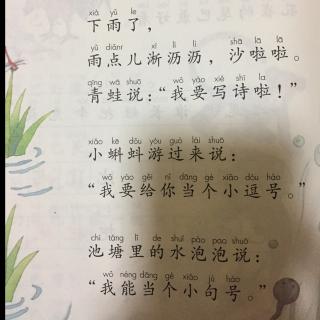 xià yǔ le
下雨了，
yǔ diǎnr xī lì lì shā lā lā
雨点儿淅沥沥，沙啦啦。
qīng wā shuō wǒ yào xiě shī la
青蛙说：“我要写诗啦！”
xiǎo kē dǒu yóu guò lái shuō
小蝌蚪游过来说：
wǒ yào gěi nǐ dāng gè xiǎo dòu hào
“我要给你当个小逗号。”
chí táng lǐ de shuǐ pào pao shuō
池塘里的水泡泡说：
wǒ néng dāng gè xiǎo jù hào
“我能当个小句号。”